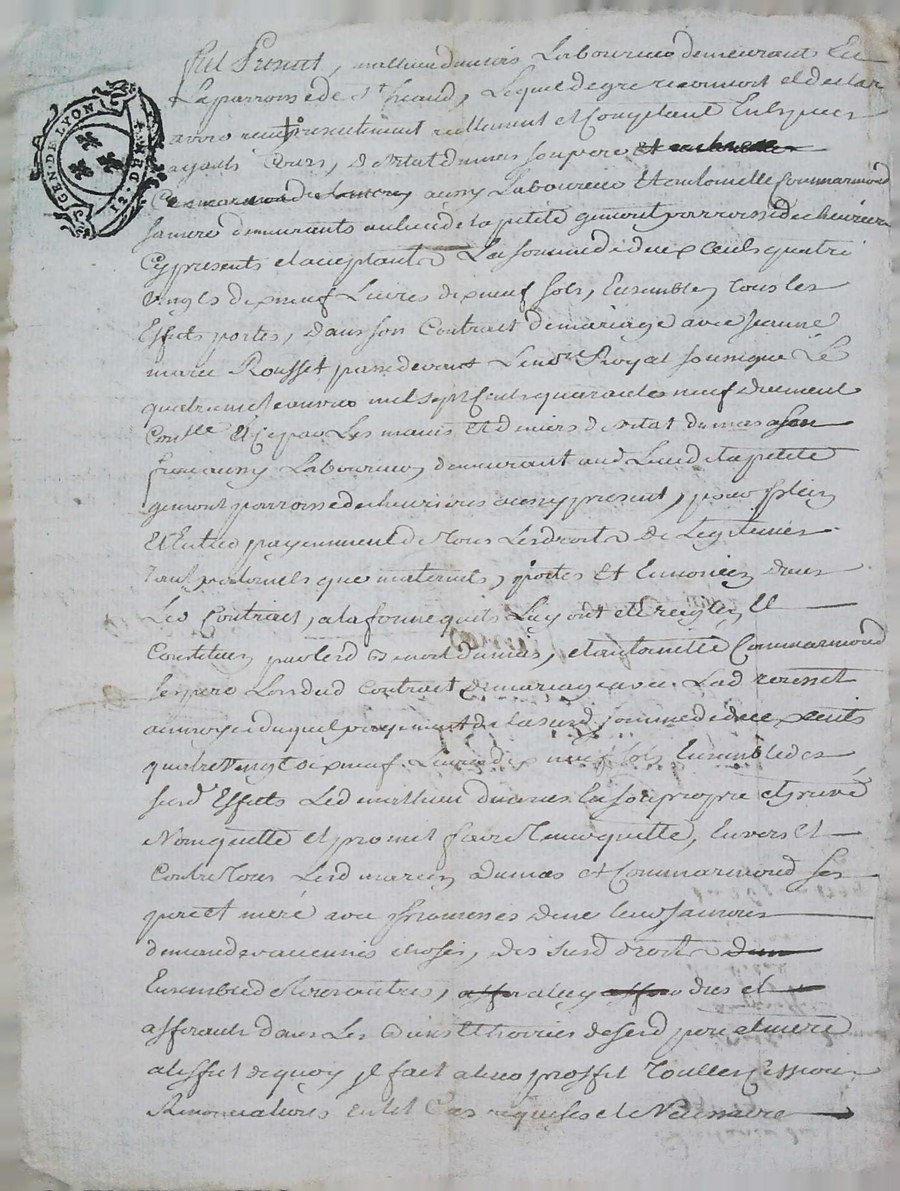 GEN. DE LYON
12. DEN.
fut Present, mathieu dumas Laboureur demeurant En
La parroisse de St heand, Lequel de gre reconnoit et declare
avoir reçu presentement reellement et Comptant En Especes
ayants Cours, de vital dumas son pere et
aussy Laboureur Et antoinette Commarmond
sa mere demeurants au lieu de la petite gimont parroisse de chevrieres
Cy presents et acceptants La somme de deux cents quatre
vingts dixneuf Livres dixneuf sols, Ensemble tous les
Effets portes, dans son Contrat de mariage avec jeanne
marie Rousset passe devant Le nore Royal soussigné Le
quatrieme feauvrier mil sept cents quarante neuf duement
Conllé Et Ce par Les mains Et deniers de vital dumas son
frere aussy Laboureur, demeurant aud Lieu de la petite
gimont parroisse de chevrieres aussy present, pour plein
Et Entier payemment de tous Les droits De Legitimes
tant paternels que maternels, portes Et Ennoncez dans
Led Contrat, a la forme quils Luy ont ete reglez Et
Constituez par led vital dumas, et antoinette Commarmond
ses pere Lors dud Contrat de mariage avec Lad rousset
au moyen duquel payement de la susd somme de deux cents
quatre vingt dixneuf Livres dix neuf sols Ensemble des
susd Effets Led mathieu dumas En son propre et privé
Nom quitte et promet faire tenir quitte, Envers et
Contre tous Lesd maries dumas et Commarmond ses
pere et mere avec promesses de ne leur jamais
demander aucunes choses, des susd droits
Ensemble de tous autres, escheus et
afferants dans Les Biens Et hoiries de sesd pere et mere
a leffet de quoy il fait a leur proffit toutles Cessions
Renonciations En tel Cas requises et Necessaire